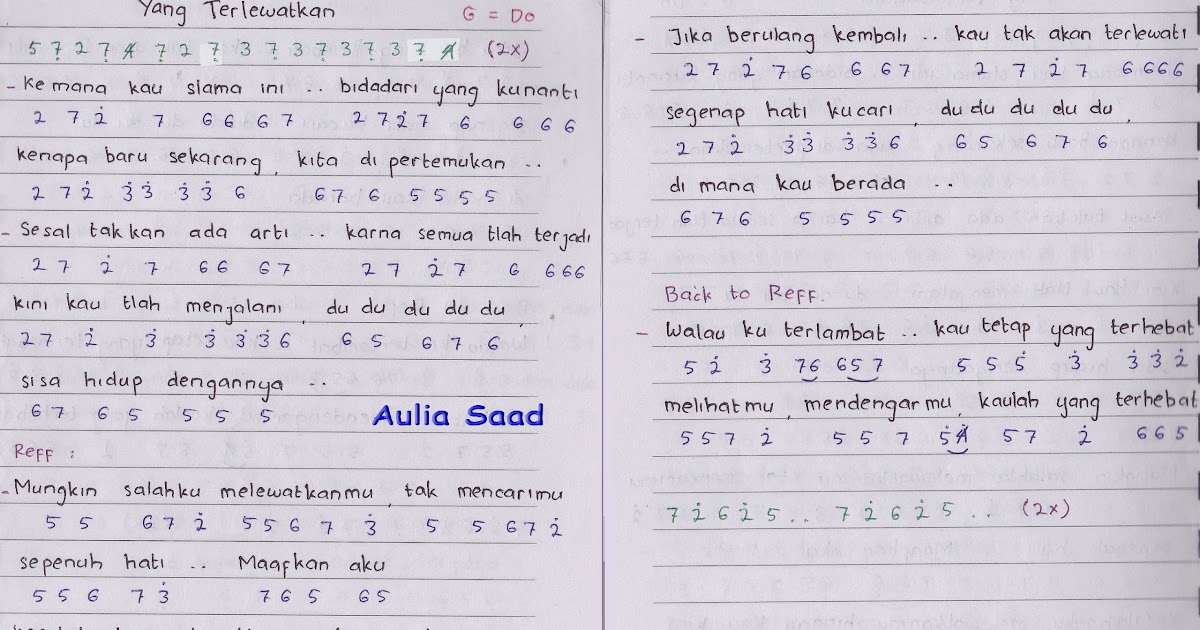 Yang Terlewatkan G = Do
5 7̣ 2 7̣ 4̸ 7̣ 2 7̣ 3 7̣ 3 7̣ 3 7̣ 3 7̣ 4̸ (2x)
- Kemana kau slama ini .. bidadari yang kunanti
2 7 2̇ 7 6 6 6 7 2 7 2̇ 7 6 6 6 6
kenapa baru sekarang, kita di pertemukan ..
2 7 2̇ 3̇ 3̇ 3̇ 3̇ 6 6 7 6 5 5 5 5
- Sesal takkan ada arti .. karna semua tlah terjadi
2 7 2̇ 7 6 6 6 7 2 7 2̇ 7 6 6 6 6
kini kau tlah menjalani, du du du du du,
2 7 2̇ 3̇ 3̇ 3̇ 3̇ 6 6 5 6 7 6
sisa hidup dengannya ..
6 7 6 5 5 5 5
Aulia Saad
Reff :
- Mungkin salahku melewatkanmu, tak mencarimu
5 5 6 7 2̇ 5 5 6 7 3̇ 5 5 6 7 2̇
sepenuh hati .. Maafkan aku
5 5 6 7 3̇ 7 6 5 6 5
- Jika berulang kembali .. kau tak akan terlewati
2 7 2̇ 7 6 6 6 7 2 7 2̇ 7 6 6 6 6
segenap hati kucari, du du du du du,
2 7 2̇ 3̇ 3̇ 3̇ 3̇ 6 6 5 6 7 6
di mana kau berada ..
6 7 6 5 5 5 5
Back to Reff.
- Walau ku terlambat .. kau tetap yang terhebat
5 2̇ 3̇ 7 6 6 5 7 5 5 5̇ 3̇ 3̇ 3̇ 2̇
melihatmu, mendengarmu, kaulah yang terhebat
5 5 7 2̇ 5 5 7 5̇ 4̸̇ 5 7 2̇ 6 6 5
7 2̇ 6 2̇ 5 .. 7 2̇ 6 2̇ 5 .. (2x)